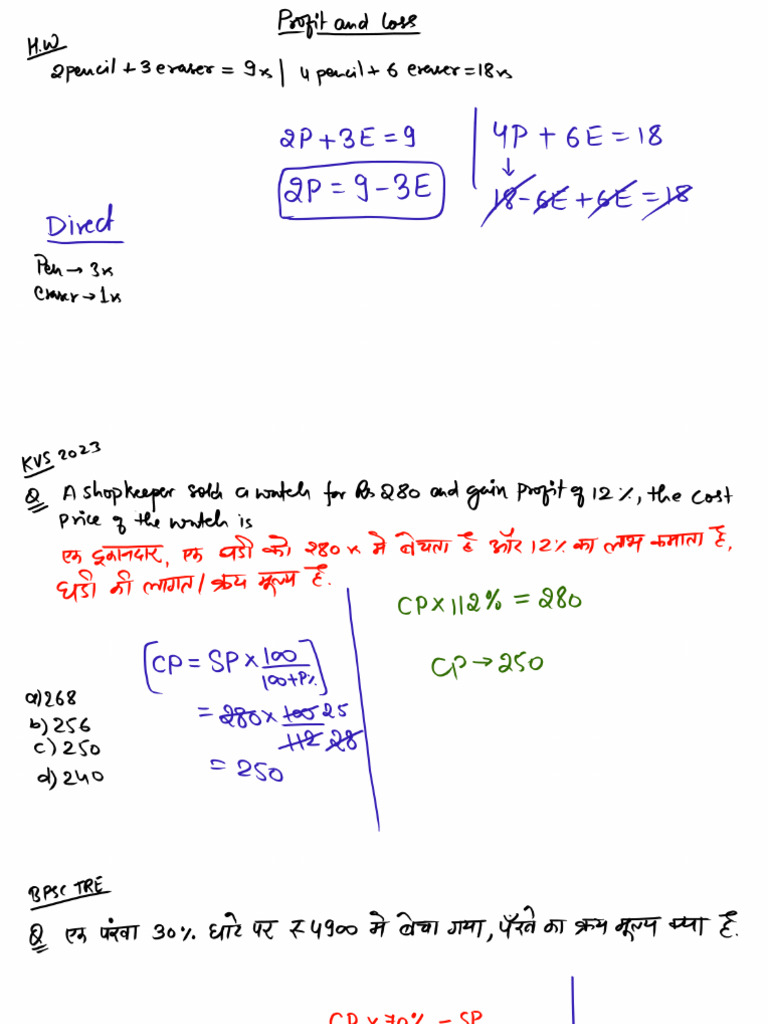 Profit and Loss
H.W
2pencil + 3 eraser = 9rs | 4 pencil + 6 eraser = 18rs
2P + 3E = 9
2P = 9 - 3E
4P + 6E = 18
↓
18 - 6E + 6E = 18
Direct
Pen → 3rs
eraser → 1rs
KVS 2023
Q A shopkeeper sold a watch for Rs 280 and gain profit of 12%, the cost
price of the watch is
एक दुकानदार, एक घडी को 280 रु मे बेचता है और 12% का लाभ कमाता है,
घडी की लागत / क्रय मूल्य है.
[CP = SP × 100/100+P%]
= 280 × 100 25/112 28
= 250
CP × 112% = 280
CP → 250
a) 268
b) 256
c) 250
d) 240
BPSC TRE
Q एक पंखा 30% घाटे पर ₹4900 मे बेचा गया, पँखे का क्रय मूल्य क्या है.
CP × 70% = SP